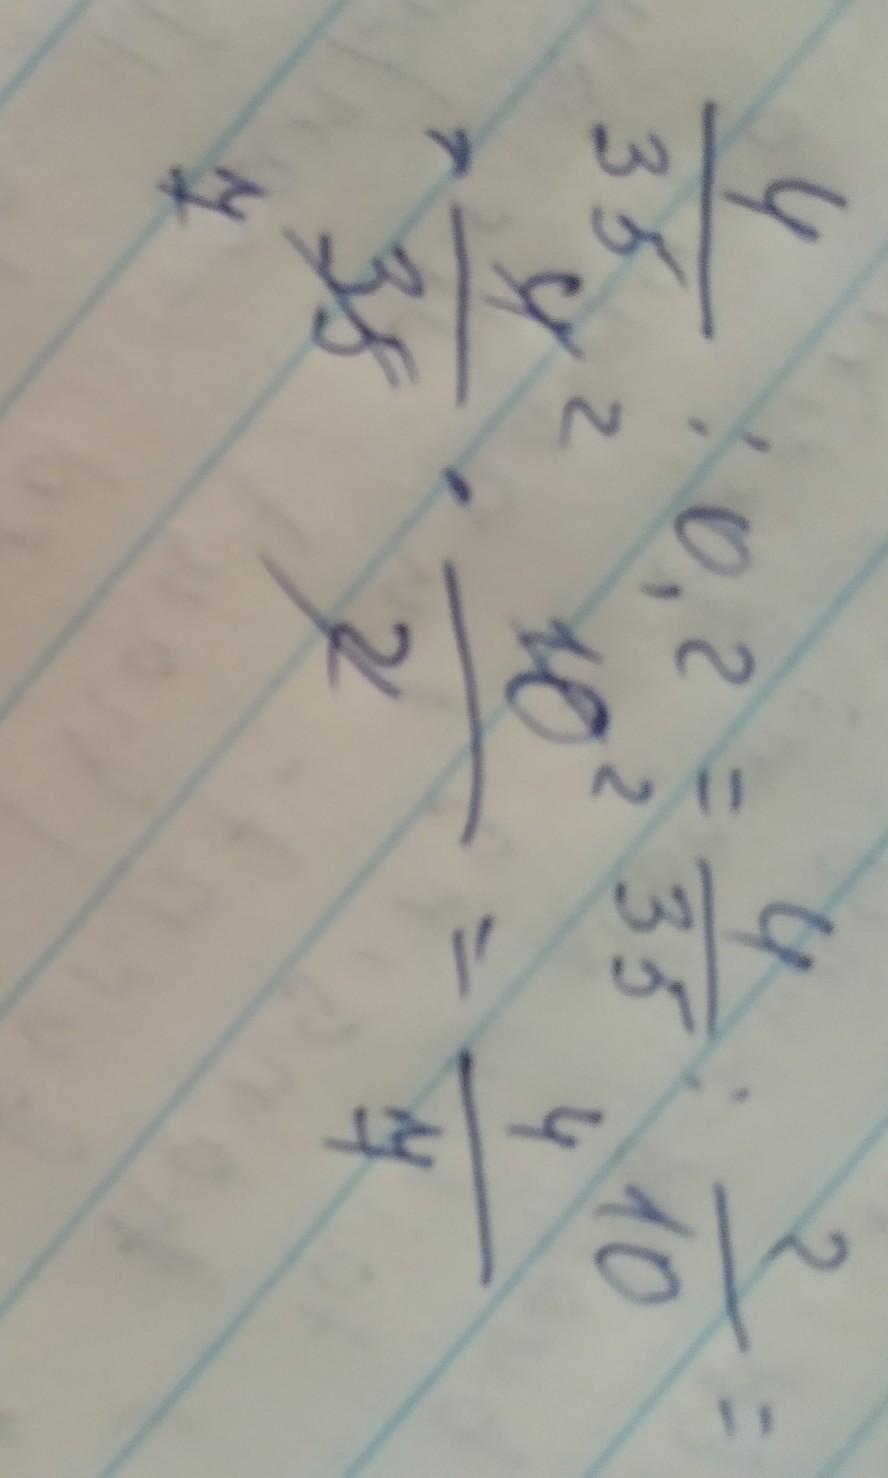 4/35 : 0,2 = 4/35 : 2/10 =
= 4 2/35 7 · 10 2/2 = 4/7